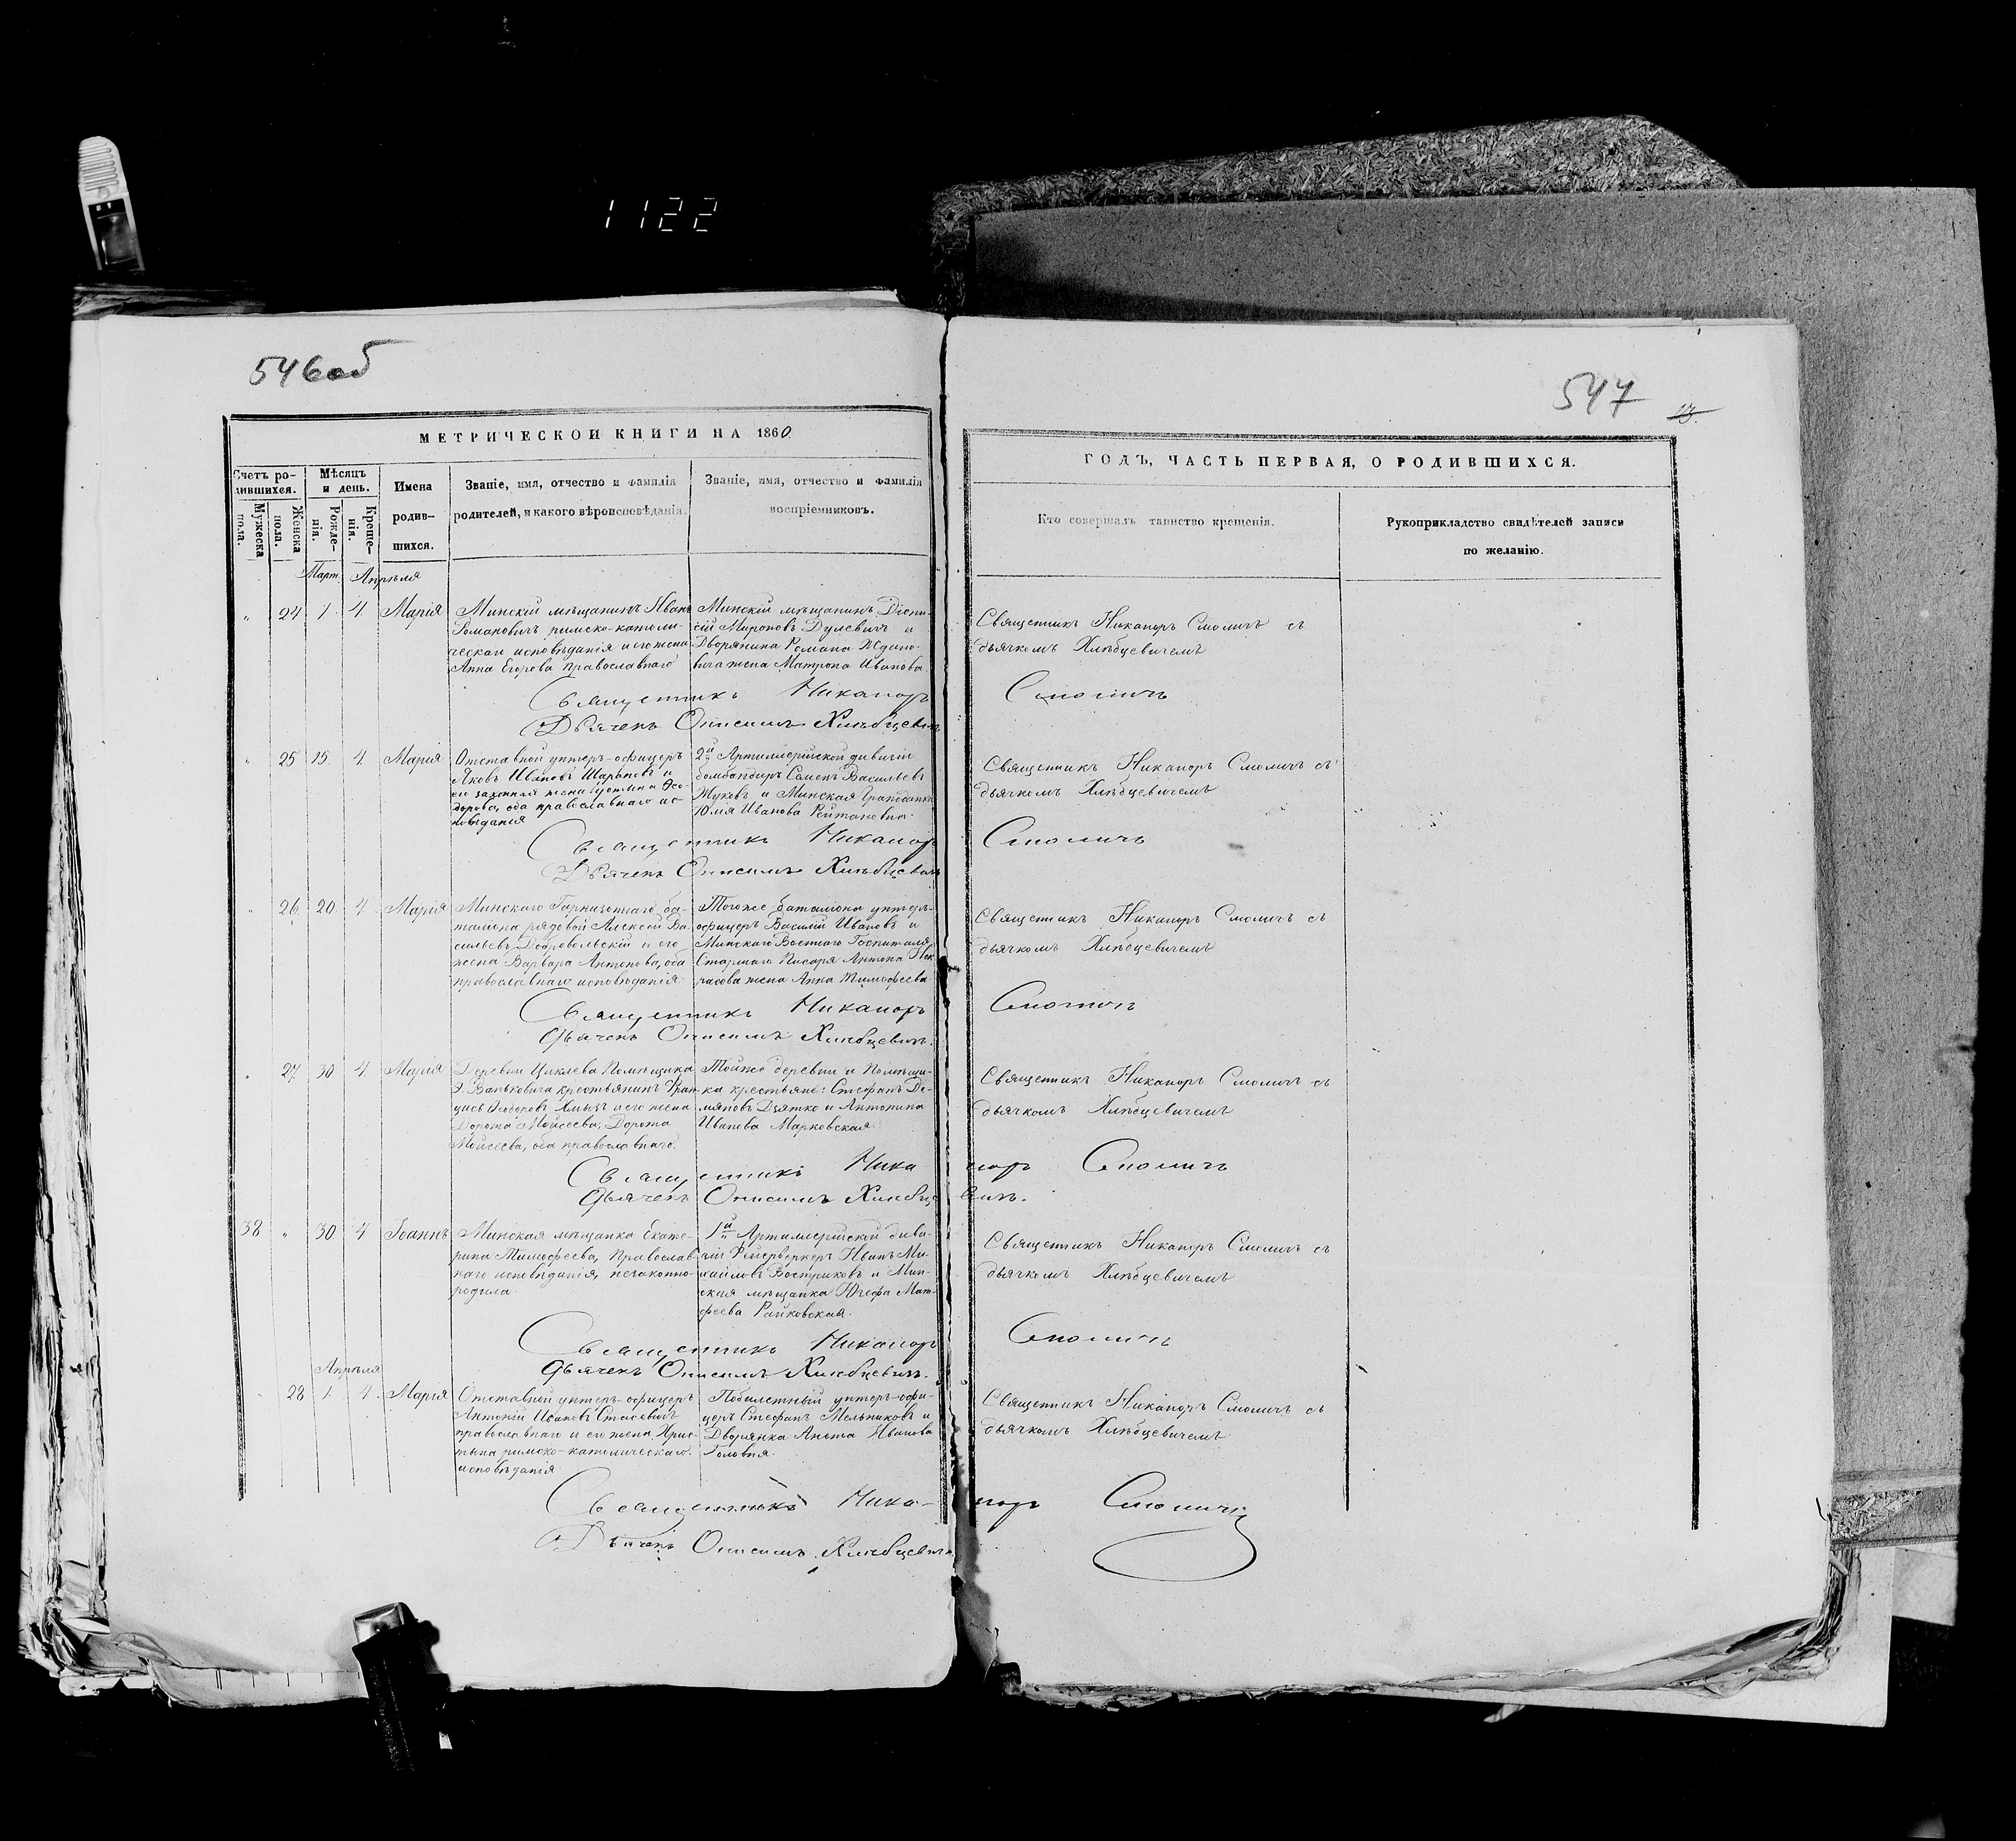 1122
546об
547
13.
МЕТРИЧЕСКОЙ КНИГИ НА 1860
ГОДЪ, ЧАСТЬ ПЕРВАЯ, О РОДИВШИХСЯ.
Счетъ ро-
дившихся.
Мужеска
пола.
Женска
пола.
Мѣсяцъ
и день.
Рожде-
нія.
Креще-
нія.
Имена
родив-
шихся.
Званіе, имя, отчество и фамилія
родителей, и какого вѣроисповѣданія.
Званіе, имя, отчество и фамилія
воспріемниковъ.
Кто совершалъ таинство крещенія.
Рукоприкладство свидѣтелей записи
по желанію.
Март. Апрѣля
„ 24 1. 4. Марія
Минскій мѣщанинъ Иванъ
Романовичъ римско-католи-
ческаго исповѣданія и его жена
Анна Егорова православнаго
Минскій мѣщанинъ Діони-
сій Мироновъ Дулевичъ и
Дворянина Романа
вича жена Матрона Иванова
Священникъ Никаноръ Смоличъ съ
дьячкомъ Хлѣбцевичемъ
Священникъ Никаноръ Смоличъ
Дьячекъ Онисимъ Хлѣбцевичъ
„ 25 15. 4. Марія
Отставной унтеръ-офицеръ
Яковъ Ивановъ и
его законная жена Устина Ѳео-
дорова, оба православнаго ис-
повѣданія
2й Артиллерійской дивизіи
бомбандиръ Семенъ Васильевъ
Жуковъ и Минская Гражданка
Юлія Иванова
Священникъ Никаноръ Смоличъ съ
дьячкомъ Хлѣбцевичемъ
Священникъ Никаноръ Смоличъ
Дьячекъ Онисимъ Хлѣбцевичъ
„ 26. 20. 4. Марія
Минскаго Гарнизоннаго ба-
таліона рядовой Алексѣй Ва-
сильевъ Добровольскій и его
жена Варвара Антонова, оба
православнаго исповѣданія
Тогоже баталіона унтеръ-
офицеръ Василій Ивановъ и
Минскаго Военнаго Госпиталя
Старшаго Писаря Антона Нек-
расова жена Анна Тимофеева
Священникъ Никаноръ Смоличъ съ
дьячкомъ Хлѣбцевичемъ
Священникъ Никаноръ Смоличъ
Дьячекъ Онисимъ Хлѣбцевичъ.
„ 27. 30 4. Марія
Деревни Помѣщика
Э. Ваньковича крестьянинъ Фран-
цисъ Ѳеодоровъ и его жена
Дорота Мойсеева, Дорота
Мойсеева, оба православнаго.
Тойже деревни и Помѣщи-
ка крестьяне: Стефанъ Де-
мяновъ Дзятко и Антонина
Иванова Марковская
Священникъ Никаноръ Смоличъ съ
дьячкомъ Хлѣбцевичемъ
Священникъ Никаноръ Смоличъ
Дьячекъ Онисимъ Хлѣбцевичъ.
38 „ 30. 4 Іоаннъ
Минская мѣщанка Екате-
рина Тимофеева, Православ-
наго исповѣданія, незаконно-
родила.
1й Артиллерійской диви-
зіи Фейерверкеръ Иванъ Ми-
хайловъ Востриковъ и Мин-
ская мѣщанка Юзефа Мат-
феева Райковская.
Священникъ Никаноръ Смоличъ съ
дьячкомъ Хлѣбцевичемъ
Священникъ Никаноръ Смоличъ
Дьячекъ Онисимъ Хлѣбцевичъ.
Апрѣля
„ 28 1. 4. Марія
Отставной унтеръ-офицеръ
Антоній Ивановъ Стасевичъ
православнаго и его жена Хрис-
тина римско-католическаго
исповѣданія
Побилетный унтеръ-офи-
церъ Стефанъ Мельниковъ и
Дворянка Анета Иванова
Головня.
Священникъ Никаноръ Смоличъ съ
дьячкомъ Хлѣбцевичемъ
Священникъ Никаноръ Смоличъ
Дьячекъ Онисимъ Хлѣбцевичъ